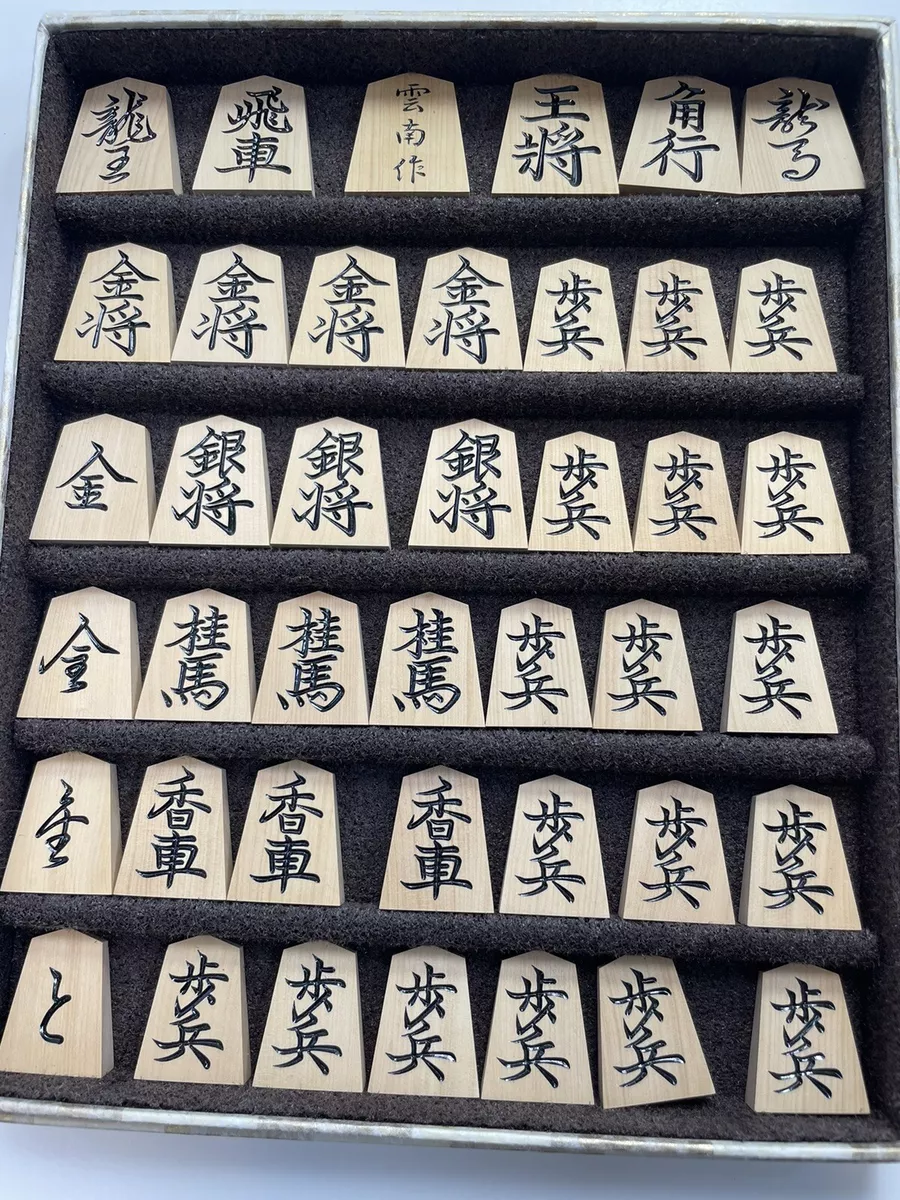 龍王 飛車 雲南作 王將 角行 龍馬
金将 金将 金将 金将 歩兵 歩兵 歩兵
金 銀将 銀将 銀将 歩兵 歩兵 歩兵
金 桂馬 桂馬 桂馬 歩兵 歩兵 歩兵
金 香車 香車 香車 歩兵 歩兵 歩兵
と 歩兵 歩兵 歩兵 歩兵 歩兵 歩兵